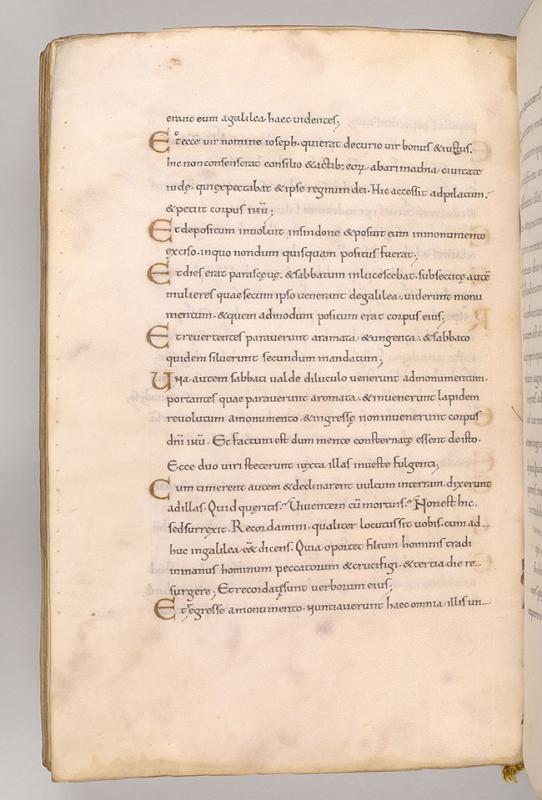 erant eum agalilea haec videntes;
Et ecce vir nomine ioseph. qui erat decurio vir bonus & iustus.
hic non consenserat consilio & actib; eorꝝ abarimathia civitate
iudę. qui expectabat & ipse regnum dei. Hic accessit ad pilatum.
& petiit corpus ihū;
Et depositum involuit insindone & posuit eum inmonumento
exciso. inquo nondum quisquam positus fuerat;
Et dies erat parascęuę. & sabbatum inlucescebat. subsecutę autē
mulieres quae secum ipso venerant degalilea. viderunt monu
mentum. & quem admodum positum erat corpus eius;
Et revertentes paraverunt aromata & ungenta. & sabbato
quidem siluerunt secundum mandatum;
Una autem sabbati valde diluculo venerunt admonumentum.
portantes quae paraverunt aromata. & invenerunt lapidem
revolutum amonumento. & ingressę non invenerunt corpus
dn̄i ihū. Et factum est dum mente consternatę essent de isto.
Ecce duo viri steterunt iuxta illas investe fulgenti;
Cum timerent autem & declinarent vultum interram. dixerunt
adillas. Quid queritis? Viventem cū mortuis? Non est hic.
sed surrexit. Recordamini. qualiter locutus sit vobis. cum ad
huc ingalilea eēt dicens. Quia oportet filium hominis tradi
inmanus hominum peccatorum & crucifigi. & tertia die re
surgere; Et recordatę sunt verborum eius;
Et regresse amonumento. nuntiaverunt haec omnia. illis un